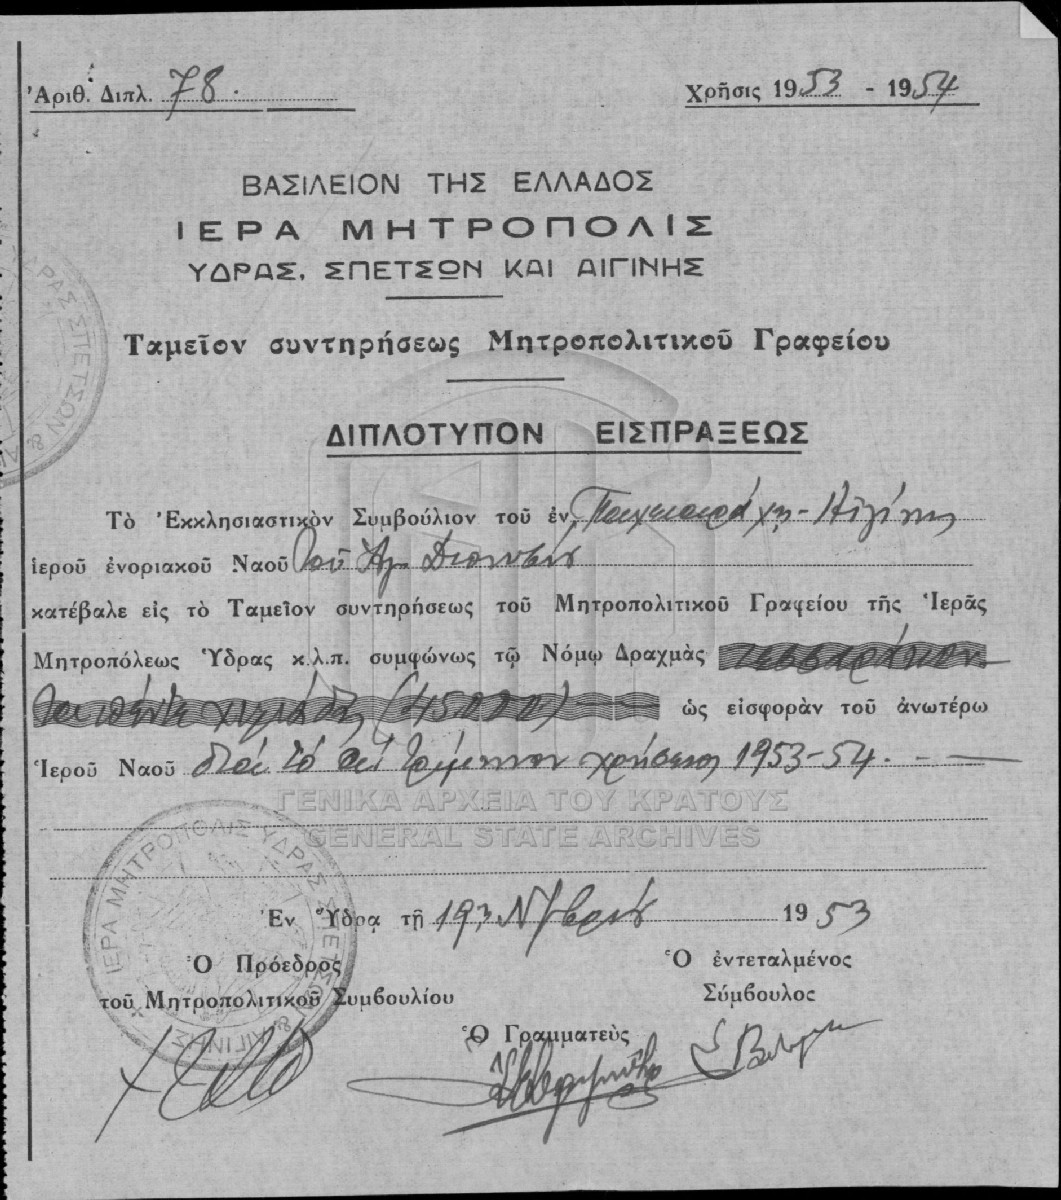 Ἀριθ. Διπλ. 78.
Χρῆσις 1953 - 1954
ΒΑΣΙΛΕΙΟΝ ΤΗΣ ΕΛΛΑΔΟΣ
ΙΕΡΑ ΜΗΤΡΟΠΟΛΙΣ
ΥΔΡΑΣ, ΣΠΕΤΣΩΝ ΚΑΙ ΑΙΓΙΝΗΣ
Ταμεῖον συντηρήσεως Μητροπολιτικοῦ Γραφείου
ΔΙΠΛΟΤΥΠΟΝ ΕΙΣΠΡΑΞΕΩΣ
Τὸ Ἐκκλησιαστικὸν Συμβούλιον τοῦ ἐν Παχειαράχη - Αἰγίνης
ἱεροῦ ἐνοριακοῦ Ναοῦ τοῦ Ἁγ. Διονυσίου
κατέβαλε εἰς τὸ Ταμεῖον συντηρήσεως τοῦ Μητροπολιτικοῦ Γραφείου τῆς Ἱερᾶς
Μητροπόλεως Ὕδρας κ.λ.π. συμφώνως τῷ Νόμῳ Δραχμὰς τεσσαράκον
ταπέντε χιλιάδες (45000) ὡς εἰσφορὰν τοῦ ἀνωτέρω
Ἱεροῦ Ναοῦ διὰ τὸ τρίμηνον χρήσεως 1953-54.
ΓΕΝΙΚΑ ΑΡΧΕΙΑ ΤΟΥ ΚΡΑΤΟΥΣ
GENERAL STATE ARCHIVES
Ἐν Ὕδρᾳ τῇ 19η Νοεμβρίου 1953
Ὁ Πρόεδρος
τοῦ Μητροπολιτικοῦ Συμβουλίου
Ὁ ἐντεταλμένος
Σύμβουλος
Ὁ Γραμματεὺς
ΙΕΡΑ ΜΗΤΡΟΠΟΛΙΣ ΥΔΡΑΣ ΣΠΕΤΣΩΝ & ΑΙΓΙΝΗΣ
ΥΔΡΑΣ ΣΠΕΤΣΩΝ &